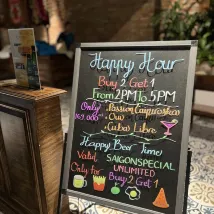 Happy Hour
Buy 2 Get 1
From 2PM To 5PM
Only
169.000
• Passion Caipiroskas
•
• Cuba Libre
Happy Beer Time
Valid SAIGON SPECIAL
UNLIMITED
Only for Buy 2 Get 1